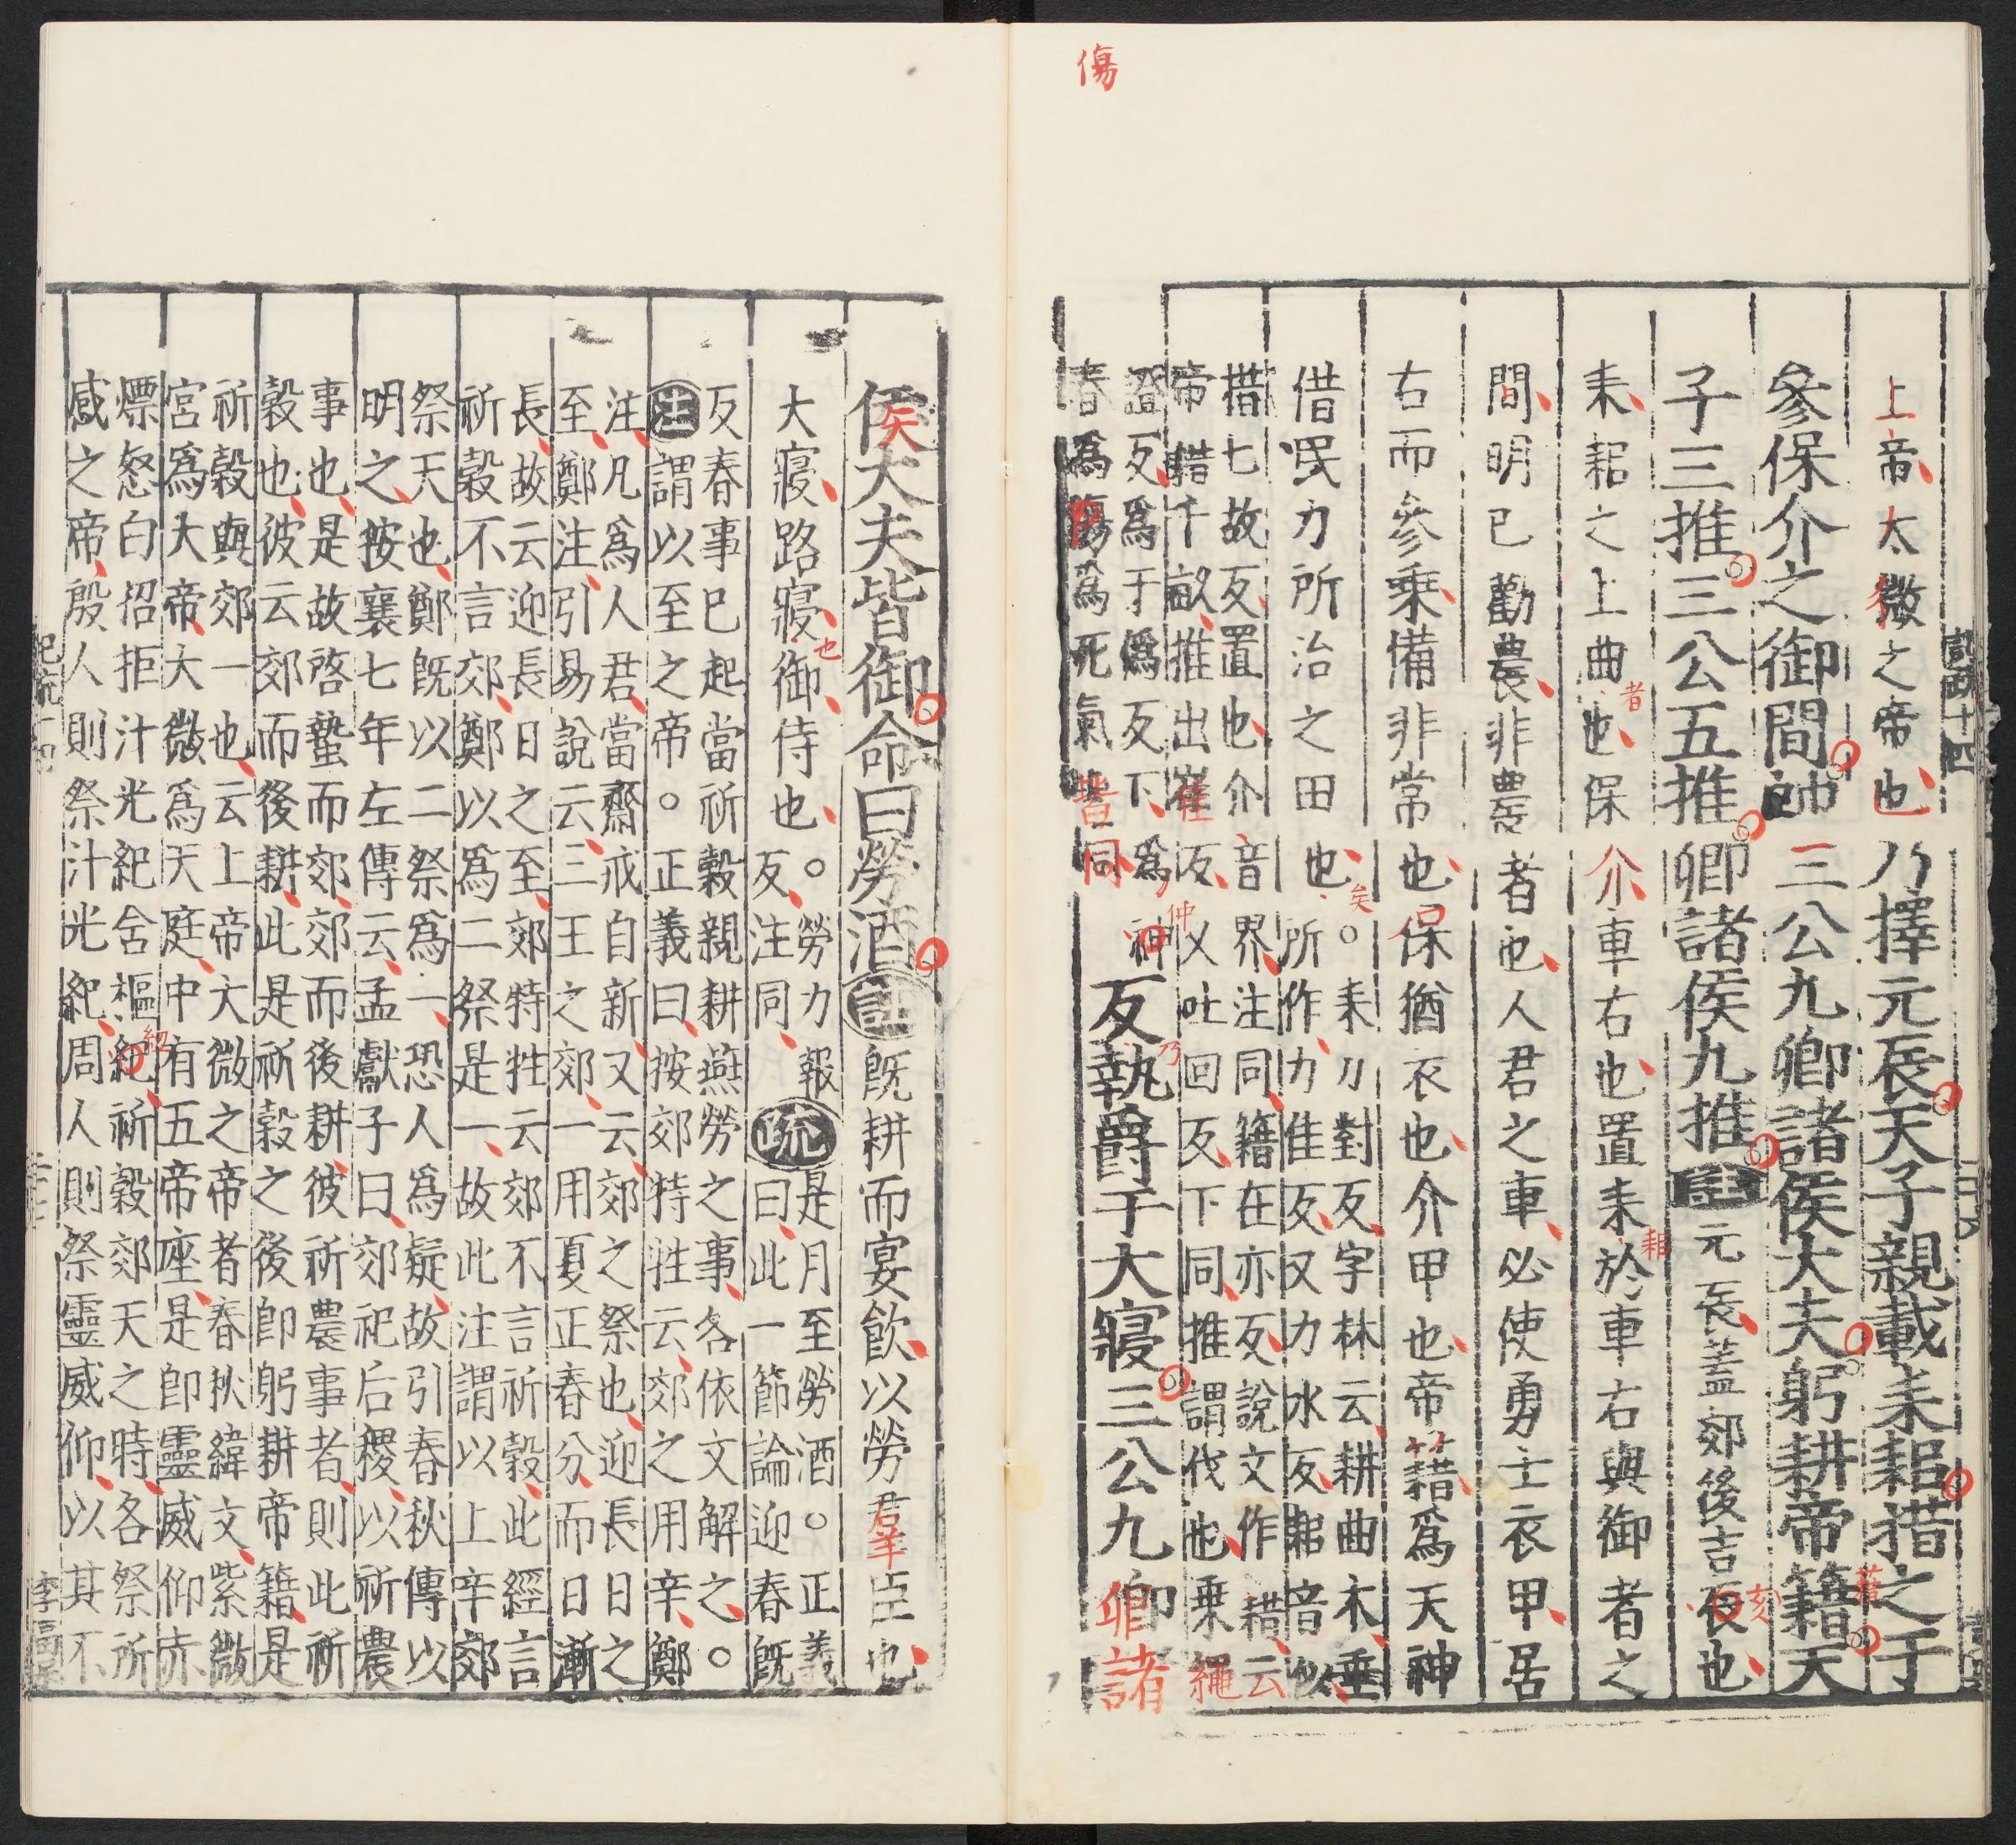 傷
上帝太微之帝也乃擇元辰天子親載耒耜措之于
參保介之御間帥三公九卿諸侯大夫躬耕帝籍天
子三推三公五推卿諸侯九推註元辰蓋郊後吉辰也
亥
耒耜之上曲也保介車右也置耒於車右與御者之
者
耜
間明已勸農非農者也人君之車必使勇士衣甲居
右而參乘備非常也保猶衣也介甲也帝籍爲天神
借民力所治之田也
矣
○耒力對反字林云耕曲木垂
所作力隹反又力水反耜音似
措七故反置也介音界注同籍在亦反說文作耤云
帝耤千畝推出崔反又吐回反下同推謂伐也乗繩
證反爲于僞反下爲
仲
春爲傷爲死氣皆同
反執爵于大寢三公九卿諸
乃
侯大夫皆御命曰勞酒註既耕而宴飲以勞羣臣也
大寢路寢御侍也○勞力報
也
反注同
疏是月至勞酒○正義
曰此一節論迎春既
反春事已起當祈穀親耕燕勞之事各依文解之○
注謂以至之帝○正義曰按郊特牲云郊之用辛鄭
注凡爲人君當齋戒自新又云郊之祭也迎長日之
至鄭注引易說云三王之郊一用夏正春分而日漸
長故云迎長日之至郊特牲云郊不言祈穀此經言
祈穀不言郊鄭以爲二祭是一故此注謂以上辛郊
祭天也鄭既以二祭爲一恐人爲疑故引春秋傳以
明之按襄七年左傳云孟獻子曰郊祀后稷以祈農
事也是故啓蟄而郊郊而後耕彼祈農事者則此祈
穀也彼云郊而後耕此是祈穀之後即躬耕帝籍是
祈穀與郊一也云上帝大微之帝者春秋緯文紫微
宮爲大帝大微爲天庭中有五帝座是即靈威仰赤
熛怒白招拒汁光紀含樞紐祈穀郊天之時各祭所
感之帝殷人則祭汁光紀周人則祭靈威仰以其不